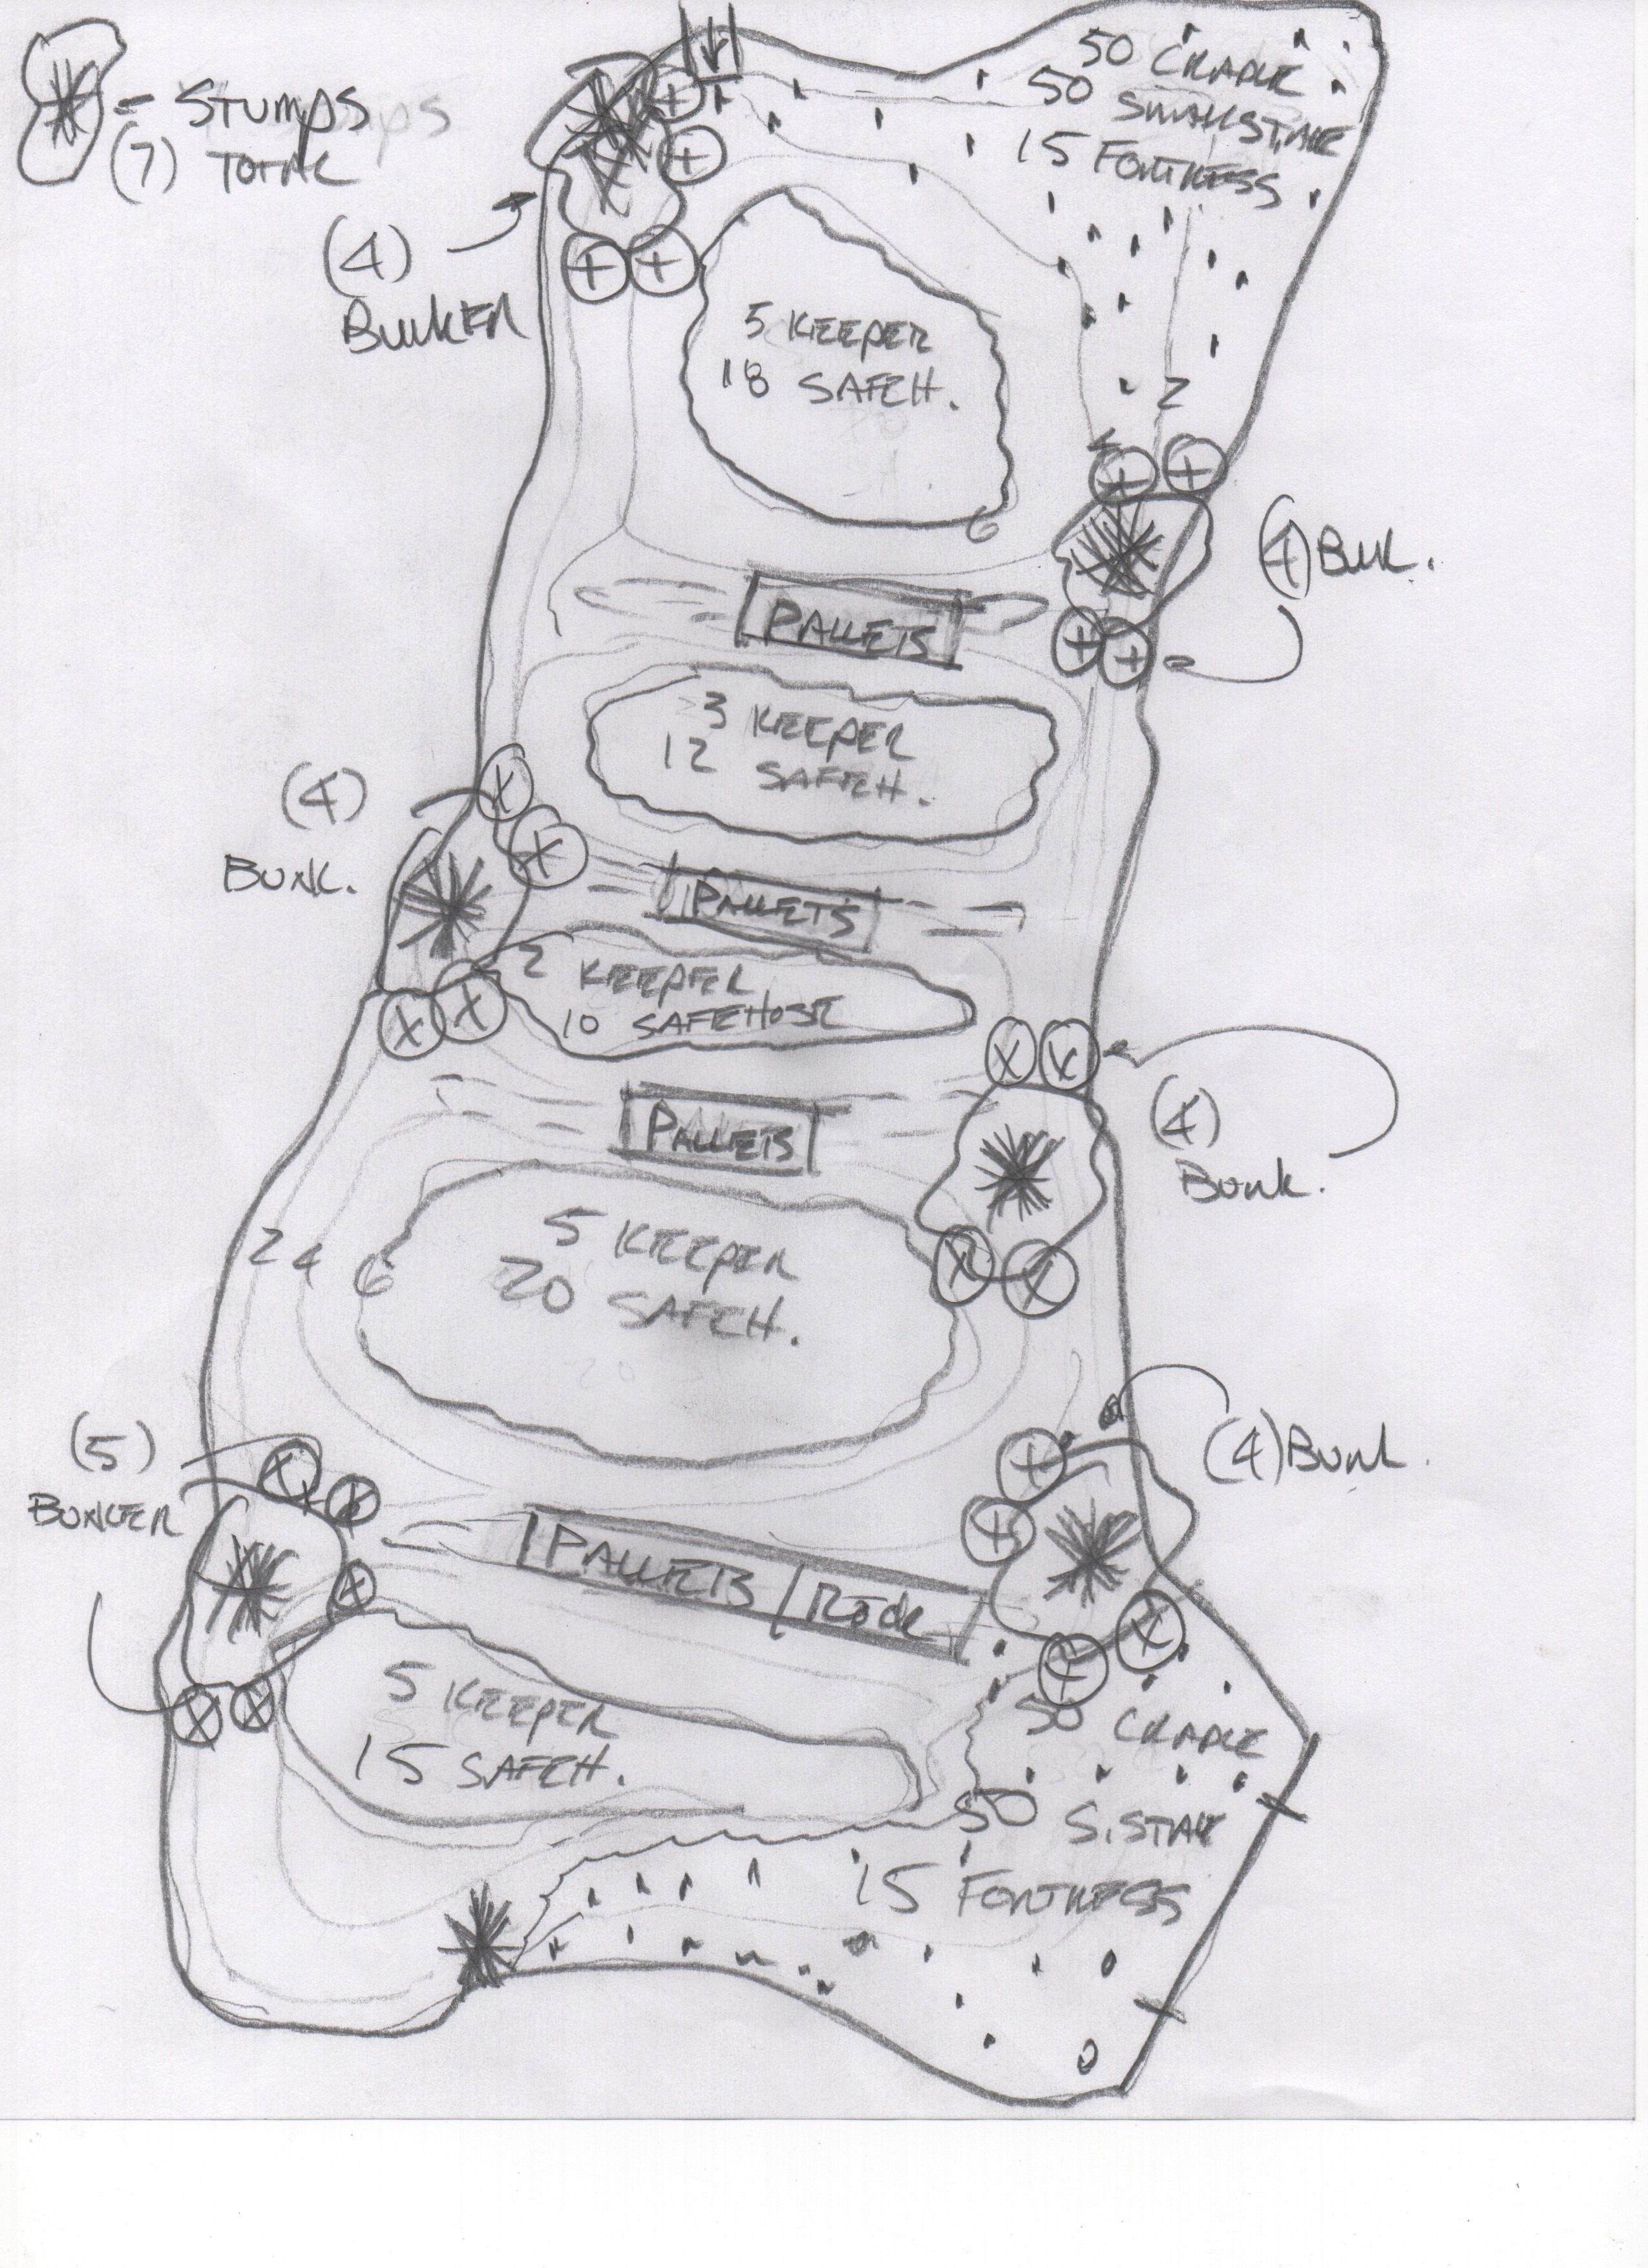 = STUMPS
(7) TOTAL
50 CRADLE
50 SMALLSTAKE
15 FORTRESS
(4)
BUNKER
5 KEEPER
18 SAFEH.
2
4
6
(4) BUNK.
PALLETS
3 KEEPER
12 SAFEH.
(4)
BUNK.
PALLETS
2 KEEPER
10 SAFEHOSE
PALLETS
(4)
BUNK.
2 4 6
5 KEEPER
20 SAFEH.
(5)
BUNKER
(4) BUNK.
PALLETS / ROCK
5 KEEPER
15 SAFEH.
50 CRADLE
50 S.STAK
15 FORTRESS